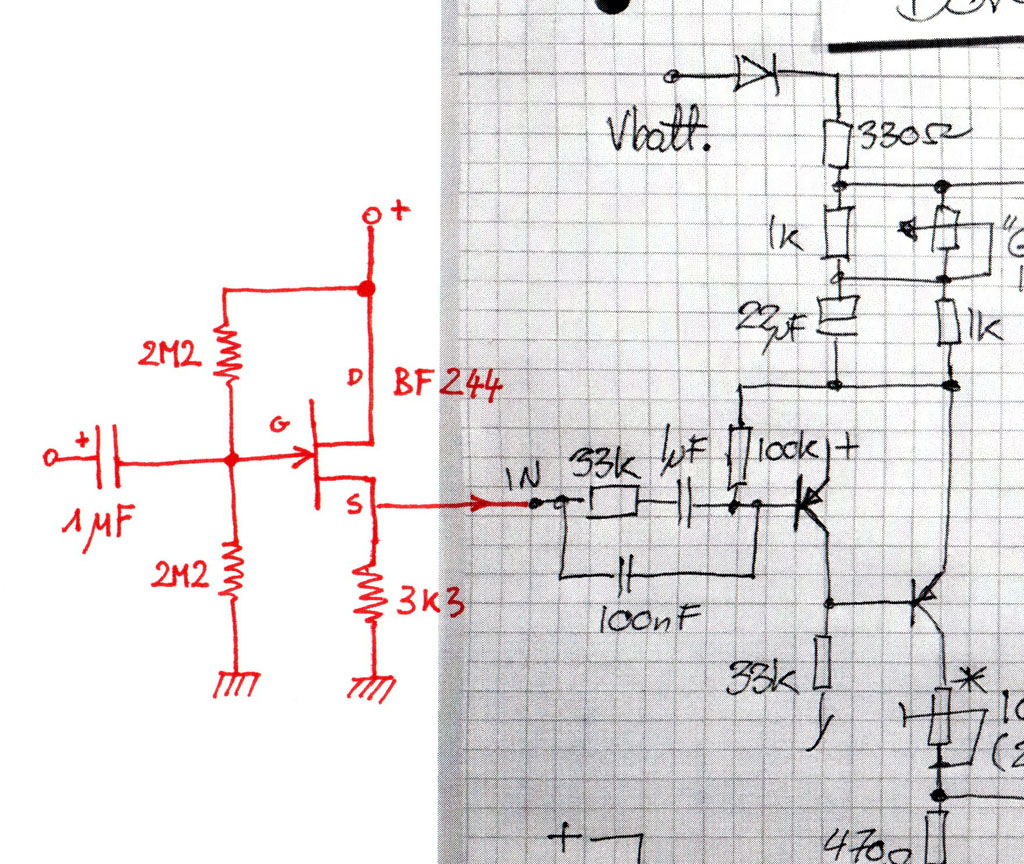 Vbatt.
330Ω
1K
22µF
1K
+
2M2
D
BF 244
G
+
1µF
S
2M2
3K3
IN
33K
1µF
100K
+
100nF
33K
*
+
470Ω